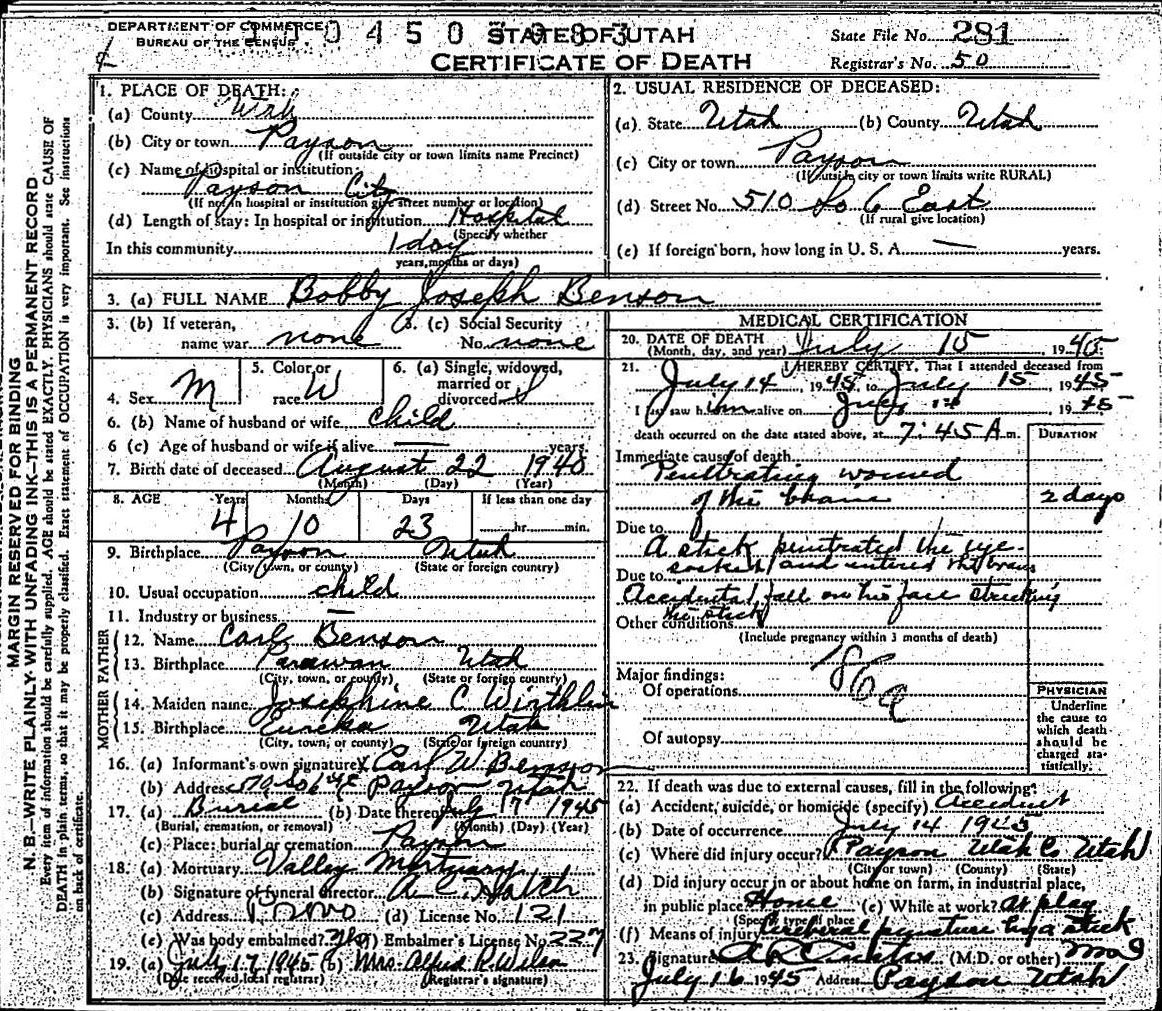 DEPARTMENT OF COMMERCE
BUREAU OF THE CENSUS
STATE OF UTAH
CERTIFICATE OF DEATH
State File No. 281
Registrar's No. 50
MARGIN RESERVED FOR BINDING
N. B.—WRITE PLAINLY WITH UNFADING INK—THIS IS A PERMANENT RECORD
Every item of information should be carefully supplied. AGE should be stated EXACTLY. PHYSICIANS should state CAUSE OF
DEATH in plain terms, so that it may be properly classified. Exact statement of OCCUPATION is very important. See instructions
on back of certificate.
1. PLACE OF DEATH:
(a) County
(b) City or town Payson
(If outside city or town limits name Precinct)
(c) Name of hospital or institution
Payson City
(If not in hospital or institution give street number or location)
(d) Length of stay: In hospital or institution Hospital
(Specify whether
In this community 1 day
years, months or days)
2. USUAL RESIDENCE OF DECEASED:
(a) State Utah (b) County Utah
(c) City or town Payson
(If outside city or town limits write RURAL)
(d) Street No. 510 So 6 East
(If rural give location)
(e) If foreign born, how long in U. S. A. — years.
3. (a) FULL NAME Bobby Joseph Benson
3. (b) If veteran,
name war none
3. (c) Social Security
No. none
4. Sex M
5. Color or
race W
6. (a) Single, widowed,
married or
divorced S
6. (b) Name of husband or wife child
6 (c) Age of husband or wife if alive — years.
7. Birth date of deceased August 22 1940
(Month) (Day) (Year)
8. AGE Years Months Days If less than one day
4 10 23 hr. min.
9. Birthplace Payson Utah
(City, town, or county) (State or foreign country)
10. Usual occupation child
11. Industry or business —
FATHER
12. Name Carl Benson
13. Birthplace Parowan Utah
(City, town, or county) (State or foreign country)
MOTHER
14. Maiden name Josephine C Wirthlin
15. Birthplace Eureka Utah
(City, town, or county) (State or foreign country)
16. (a) Informant's own signature X Carl W. Benson
(b) Address Payson Utah
17. (a) Burial (b) Date thereof July 17 1945
(Burial, cremation, or removal) (Month) (Day) (Year)
(c) Place: burial or cremation Payson
18. (a) Mortuary Valley Mortuary
(b) Signature of funeral director
(c) Address Provo (d) License No. 121
(e) Was body embalmed? Yes (f) Embalmer's License No. 227
19. (a) July 17 1945 (b) Mrs. Alfred R. Wilson
(Date received local registrar) (Registrar's signature)
MEDICAL CERTIFICATION
20. DATE OF DEATH
(Month, day, and year) July 15, 1945
21. I HEREBY CERTIFY, That I attended deceased from
July 14, 1945, to July 15, 1945
I last saw him alive on July 14, 1945
death occurred on the date stated above, at 7:45 A m.
DURATION
Immediate cause of death
Penetrating wound
of the brain 2 days
Due to
A stick penetrated the eye-
socket and entered the brain
Due to
Accidental fall on his face striking
the stick
Other conditions
(Include pregnancy within 3 months of death)
186a
Major findings:
Of operations
Of autopsy
PHYSICIAN
Underline
the cause to
which death
should be
charged sta-
tistically.
22. If death was due to external causes, fill in the following:
(a) Accident, suicide, or homicide (specify) accident
(b) Date of occurrence July 14 1945
(c) Where did injury occur? Payson Utah Co Utah
(City or town) (County) (State)
(d) Did injury occur in or about home on farm, in industrial place,
in public place Home (e) While at work? at play
(Specify type of place)
(f) Means of injury Cerebral puncture by a stick
23. Signature (M.D. or other) MD
July 16 1945 Address Payson Utah